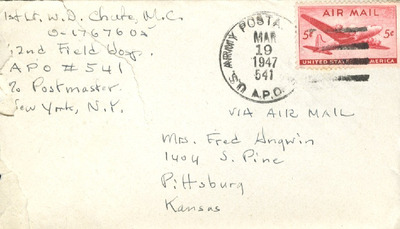 1st Lt. W. D. M.C.
O-1767602
2nd Field Hosp.
APO #541
℅ Postmaster
New York, N.Y.
U.S. ARMY POSTAL
MAR
19
1947
541
A.P.O.
AIR MAIL
5¢ 5¢
UNITED STATES AMERICA
VIA AIR MAIL
Mrs. Fred Angwin
1404 S. Pine
Pittsburg
Kansas